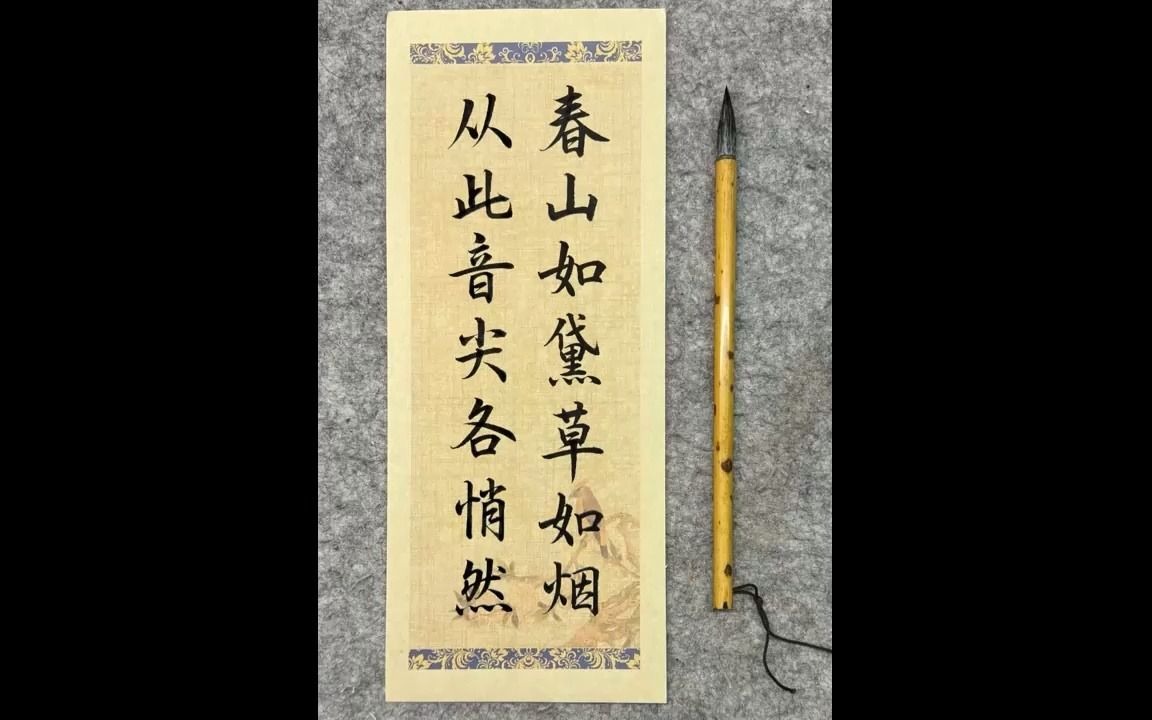 春山如黛草如烟
从此音尖各悄然